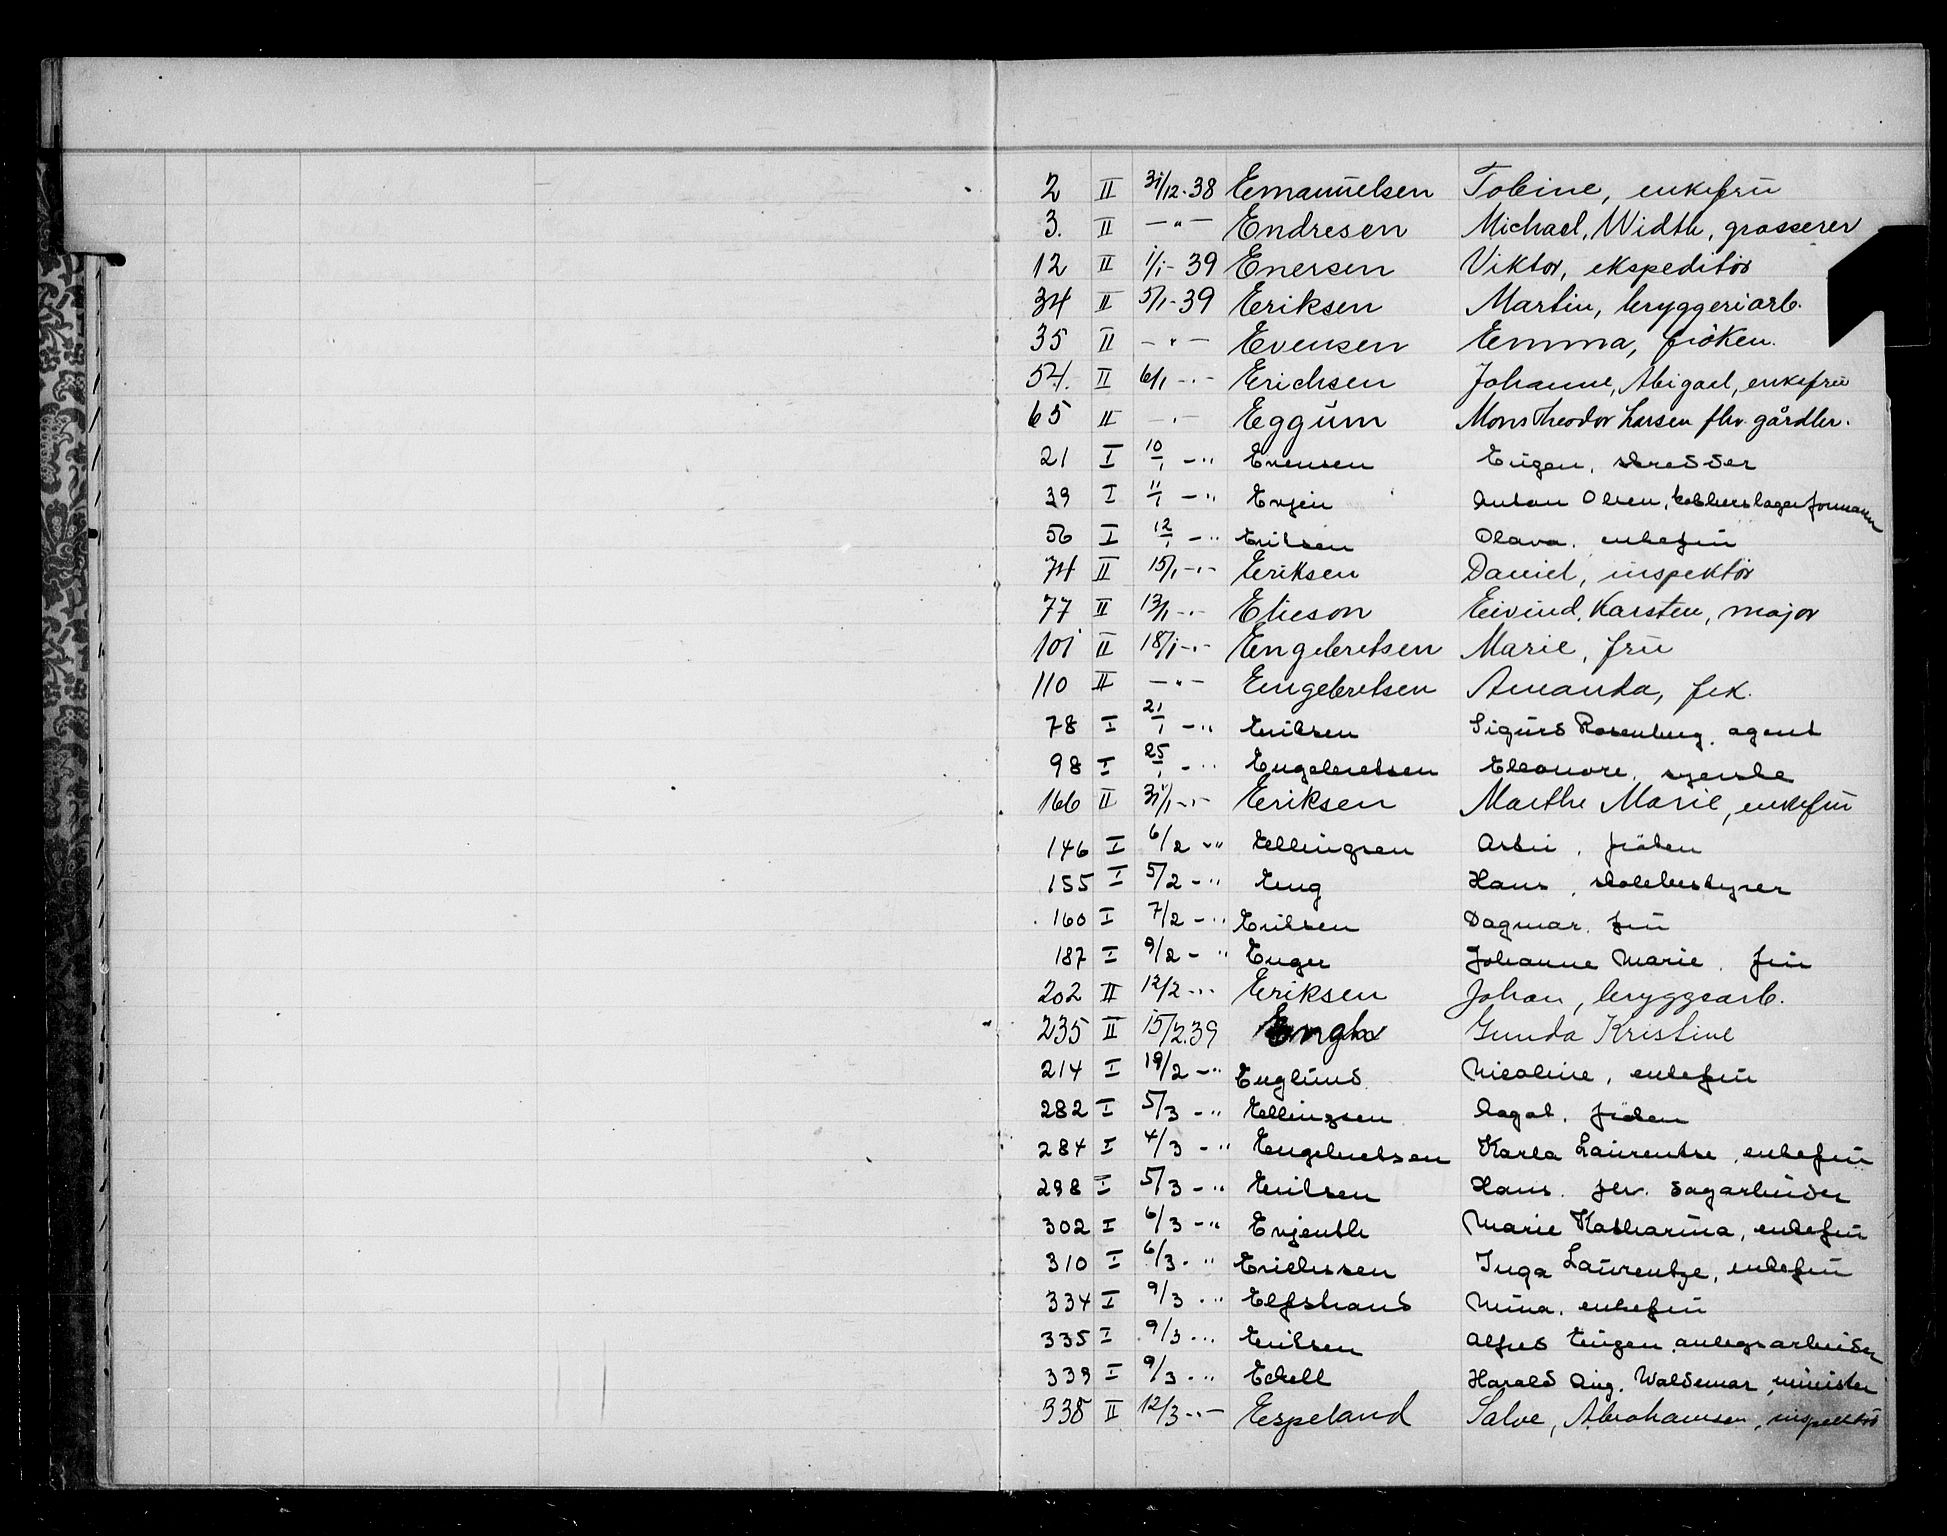 2 II 31/12-38 Emanuelsen Tobine, enkefrü
3. II —"— Endresen Michael, Width, grosserer
12 II 1/1-39 Enersen Viktor, ekspeditör
34 II 5/1-39 Eriksen Martin, bryggeriarb.
35 II —"— Evensen Emma, fröken.
54. II 6/1 -"- Erichsen Johanne, Abigael, enkefrü
65 II -"- Eggüm Mons Theodor Larsen fhv. gårdbr.
21 I 10/1 -" Evensen Eugen, skredder
39 I 11/1 -" Evjen Anton Olsen, kobberslagerformann
56 I 12/1 -" Eriksen Olava. enkefrü
74 II 15/1 -"- Eriksen Daniel, inspektör
77 II 13/1 -"- Elieson Eivind, Karsten, major
101 II 18/1 -"- Engebretsen Marie, frü
110 II —"— Engebretsen Amanda, frk.
78 I 21/1 -" Eriksen Sigurd Rosenberg. agent
98 I 25/1 -" Engebretsen Eleonore, syerske
166 II 31/1 -"- Eriksen Marthe Marie, enkefrü
146 I 6/2 -" Ellingsen fröken
155 I 5/2 -" Eng Hans, stallbestyrer
160 I 7/2 -" Eriksen Dagmar. frü
187 I 9/2 -" Enger Johanne Marie. frü
202 II 12/2 -"- Eriksen Johan, bryggearb.
235 II 15/2.39 Gunda Kristine
214 I 19/2 -" Englund Nicoline, enkefrü
282 I 5/3 -" Ellingsen Aagot. fröken
284 I 4/3 -" Engebretsen Karla Laurentse, enkefrü
298 I 5/3 -" Eriksen Hans. fhv. sagarbeider
302 I 6/3 -" Evjenth Marie Katharina, enkefrü
310 I 6/3 -" Erichssen Inga Laurentze, enkefrü
334 I 9/3 -" Elfstrand Mina, enkefrü
335 I 9/3 -" Eriksen Alfred Eugen, anlegsarbeider
339 I 9/3 -" Eckell Harald Aug. Waldemar, minister
338 II 12/3 -"- Espeland Salve, Abrahamsen, inspektör